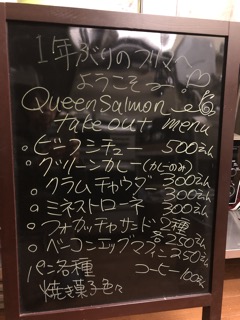 1年ぶりのフリマへ
ようこそ〜♡
Queen Salmon
take out menu
・ビーフシチュー 500えん
・グリーンカレー(カレーのみ) 300えん
・クラムチャウダー 300えん
・ミネストローネ 300えん
・フォカッチャサンド 2種 各250えん
・ベーコンエッグマフィン 250えん
パン各種 コーヒー100えん
焼き菓子色々